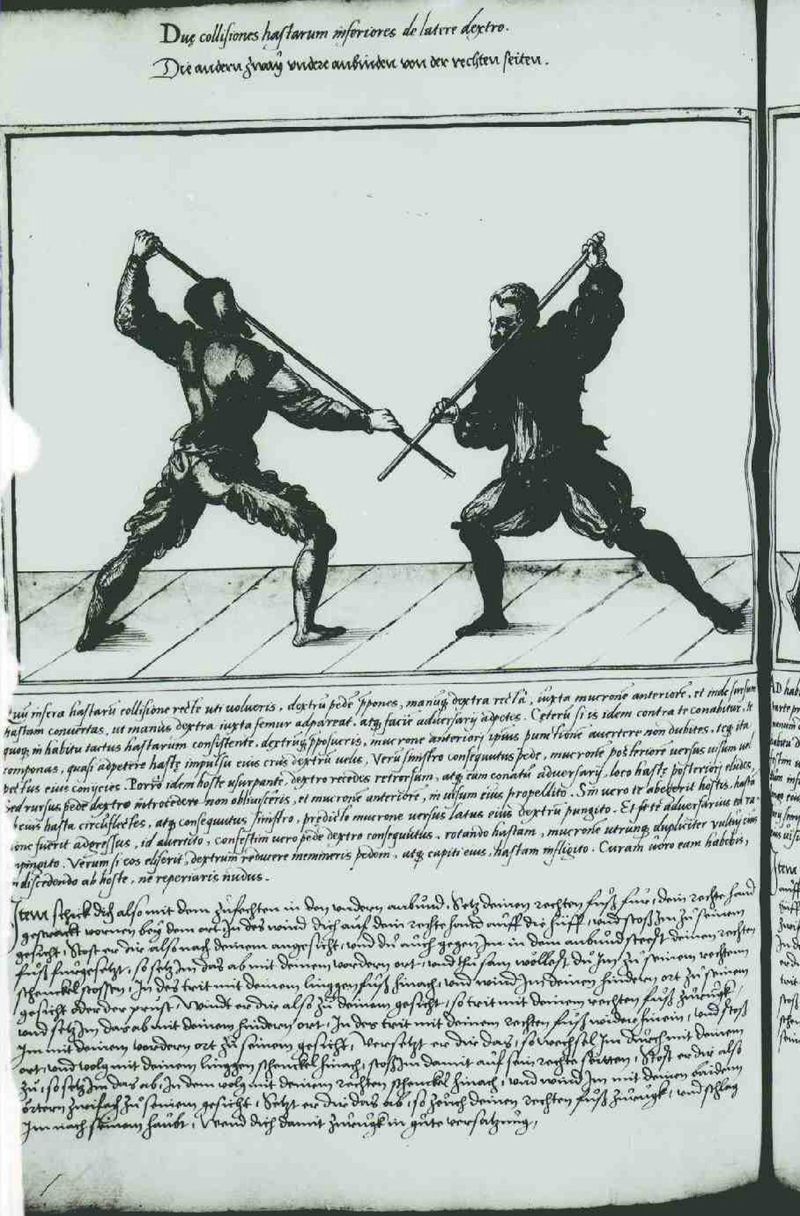 Duę collisiones hastarum inferiores de latere dextro.
Die andern zway undere anbinden von der rechten seiten.
infera hastarū collisione recte uti volueris, dextrū pede ppones, manuq dextra recta, iuxta mucrone anteriore, et inde sursum
hastam convertas, ut manus dextra iuxta femur adpareat, atq facie adversarij adpetis. Ceterū si is idem contra te conabitur,
quoq in habitu tactus hastarum consistente, dextrūq pposueris, mucrone anteriori ipsius punctione avertere non dubites, teq ita
componas, quasi adpetere hastę impulsu eius crus dextrū velis, Verū sinistro consequutus pede, mucrone posteriore versus visum vel
pectus eius conycies. Porrò idem hoste usurpante, dextro recedes retrorsum, atq eum conatū adversarij, loco hastę posteriori eludes,
sed rursus pede dextro introcedere non oblivisceris, et mucrone anteriore, in visum eius propellito. Sin vero te abegerit hostis, hasta
eius hasta circūflectes, atq consequutus sinistro, predicto mucrone versus latus eius dextrū pungito. Et si te adversarius ea
fuerit adgressus, id avertito, confestim vero pede dextro consequutus, rotando hastam, mucrone utrunq dupliciter vultui eius
impingito. Verum si eos eliserit, dextrum reducere memineris pedem, atq capiti eius, hastam infligito. Curam vero eam habebis,
discedendo ab hoste, ne reperiaris nudus.
Item schick dich also mit dem zufechten in den undern anbund, Setz deinen rechten fuß für, dein rechte hand
gestrackt vornen bey dem ort In des wind dich auf dein rechte hand auff die hüff, und stoß Im zu seinem
gesicht, Stost er dir also nach deinem angesicht, und du auch gegen Im in dem anbund steest deinen rechten
fuß fürgesetzt, so setz Im das ab mit deinem vordern ort, und thu sam wollest du Im zu seinem rechtem
schenckel stossen, In des trit mit deinem linggen fuß hinach, und wind Im deinen hindern ort zu seinem
gesicht oder der prust, Windt er dir also zu deinem gesicht, so trit mit deinem rechten fuß zurugk,
und setz Im das ab mit deinem hindern ort, In des trit mit deinem rechten fuß wider hinein, und stoß
Im mit deinem vordern ort zu seinem gesicht, Versetzt er dir das, so wechsel Im durch mit deinem
ort, und volg mit deinem linggen schenckel hinach, stoß Im damit auf sein rechte seitten, Stost er dir also
zu, so setz Im das ab, In dem volg mit deinem rechten schenckel hinach, und wind Im mit deinen baiden
örtern zwifach zu seinem gesicht, Setzt er dir das ab, so zeuch deinen rechten fuß zurugk, und schlag
Im nach seinem haubt, Wend dich damit zurugk in gute versatzung,